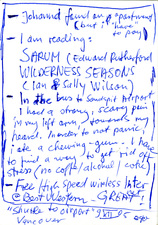 - Johanna found an "apartment"
(but I "have"
to pay)
- I am reading:
SARUM (Edward Rutherfurd)
WILDERNESS SEASONS
(Ian & Sally Wilson)
- In the bus to airport
I had a strong, scary pain
in my left arm, towards my
hand. In order not to panic, I
ate a chewing-gum. I have
to find a way to get rid of
stress (no coffee/alcohol/coke)
- Free high speed wireless Inter
@ Best Western. GREAT!
"Shuttle to airport"
Vancouver